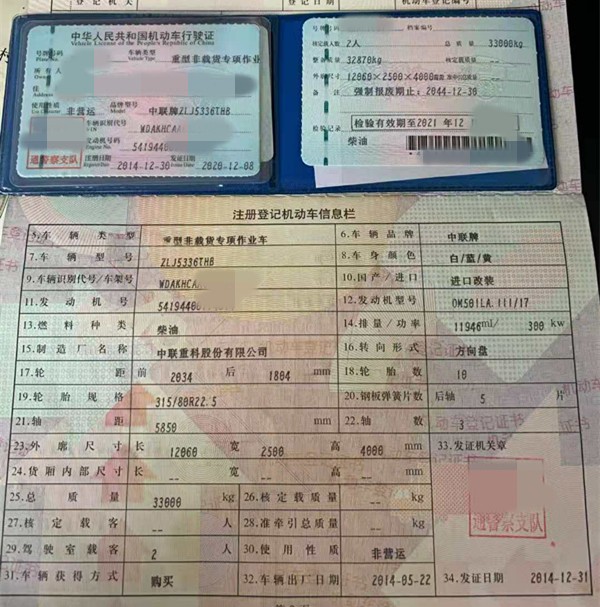 注册登记机关
机动车登记编号
中华人民共和国机动车行驶证
Vehicle License of the People's Republic of China
号牌号码
Plate No.
车辆类型
Vehicle Type
重型非载货专项作业车
所 有 人
住
Address
使用性质
非营运
品牌型号
Model
中联牌ZLJ5336THB
车辆识别代号
VIN
WDAKHCA
发动机号码
Engine No.
5419440
通警察支队
注册日期
2014-12-30
发证日期
Issue Date
2020-12-08
档案编号
核定载人数
2人
总 质 量
33000kg
整备质量
32870kg
核定载质量
--
外廓尺寸
12060×2500×4000mm
准牵引总质量
--
备 注
强制报废期止:2044-12-30
检验记录
检验有效期至2021年12
柴油
注册登记机动车信息栏
5.车辆类型
重型非载货专项作业车
6.车辆品牌
中联牌
7.车辆型号
ZLJ5336THB
8.车身颜色
白/蓝/黄
9.车辆识别代号/车架号
WDAKHCA
10.国产/进口
进口改装
11.发动机号
5419440
12.发动机型号
OM501LA.III/17
13.燃料种类
柴油
14.排量/功率
11946ml/ 300 kw
15.制造厂名称
中联重科股份有限公司
16.转向形式
方向盘
17.轮 距
前 2034 后 1804 mm
18.轮胎数
10
19.轮胎规格
315/80R22.5
20.钢板弹簧片数
后轴 5 片
21.轴 距
5850 mm
22.轴 数
3
23.外廓尺寸
长 12060 宽 2500 高 4000 mm
33.发证机关章
24.货厢内部尺寸
长 -- 宽 -- 高 -- mm
25.总 质 量
33000 kg
26.核定载质量
-- kg
27.核定载客
-- 人
28.准牵引总质量
-- kg
通警察支队
29.驾驶室载客
2 人
30.使用性质
非营运
31.车辆获得方式
购买
32.车辆出厂日期
2014-05-22
34.发证日期
2014-12-31